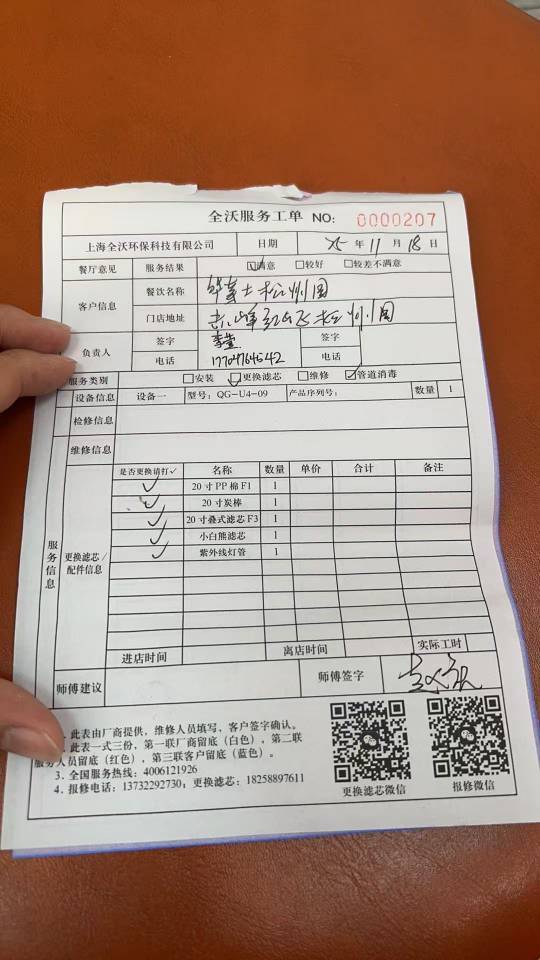 全沃服务工单 NO: 0000207
上海全沃环保科技有限公司 日期 25 年 11 月 18 日
餐厅意见 服务结果 ☑满意 □较好 □较差不满意
客户信息 餐饮名称 华莱士松州园
门店地址 赤峰红山区松州园
负责人 签字 签字
电话 17704764542 电话
服务类别 □安装 ☑更换滤芯 □维修 ☑管道消毒
设备信息 设备一 型号: QG-U4-09 产品序列号: 数量 1
检修信息
维修信息
服务信息
更换滤芯/配件信息
是否更换请打✓ 名称 数量 单价 合计 备注
✓ 20寸PP棉F1 1
✓ 20寸炭棒 1
✓ 20寸叠式滤芯F3 1
✓ 小白熊滤芯 1
✓ 紫外线灯管 1
进店时间 离店时间 实际工时
师傅建议 师傅签字
此表由厂商提供，维修人员填写，客户签字确认。
此表一式三份，第一联厂商留底（白色），第二联
服务人员留底（红色），第三联客户留底（蓝色）。
3. 全国服务热线: 4006121926
4. 报修电话: 13732292730; 更换滤芯: 18258897611
更换滤芯微信 报修微信